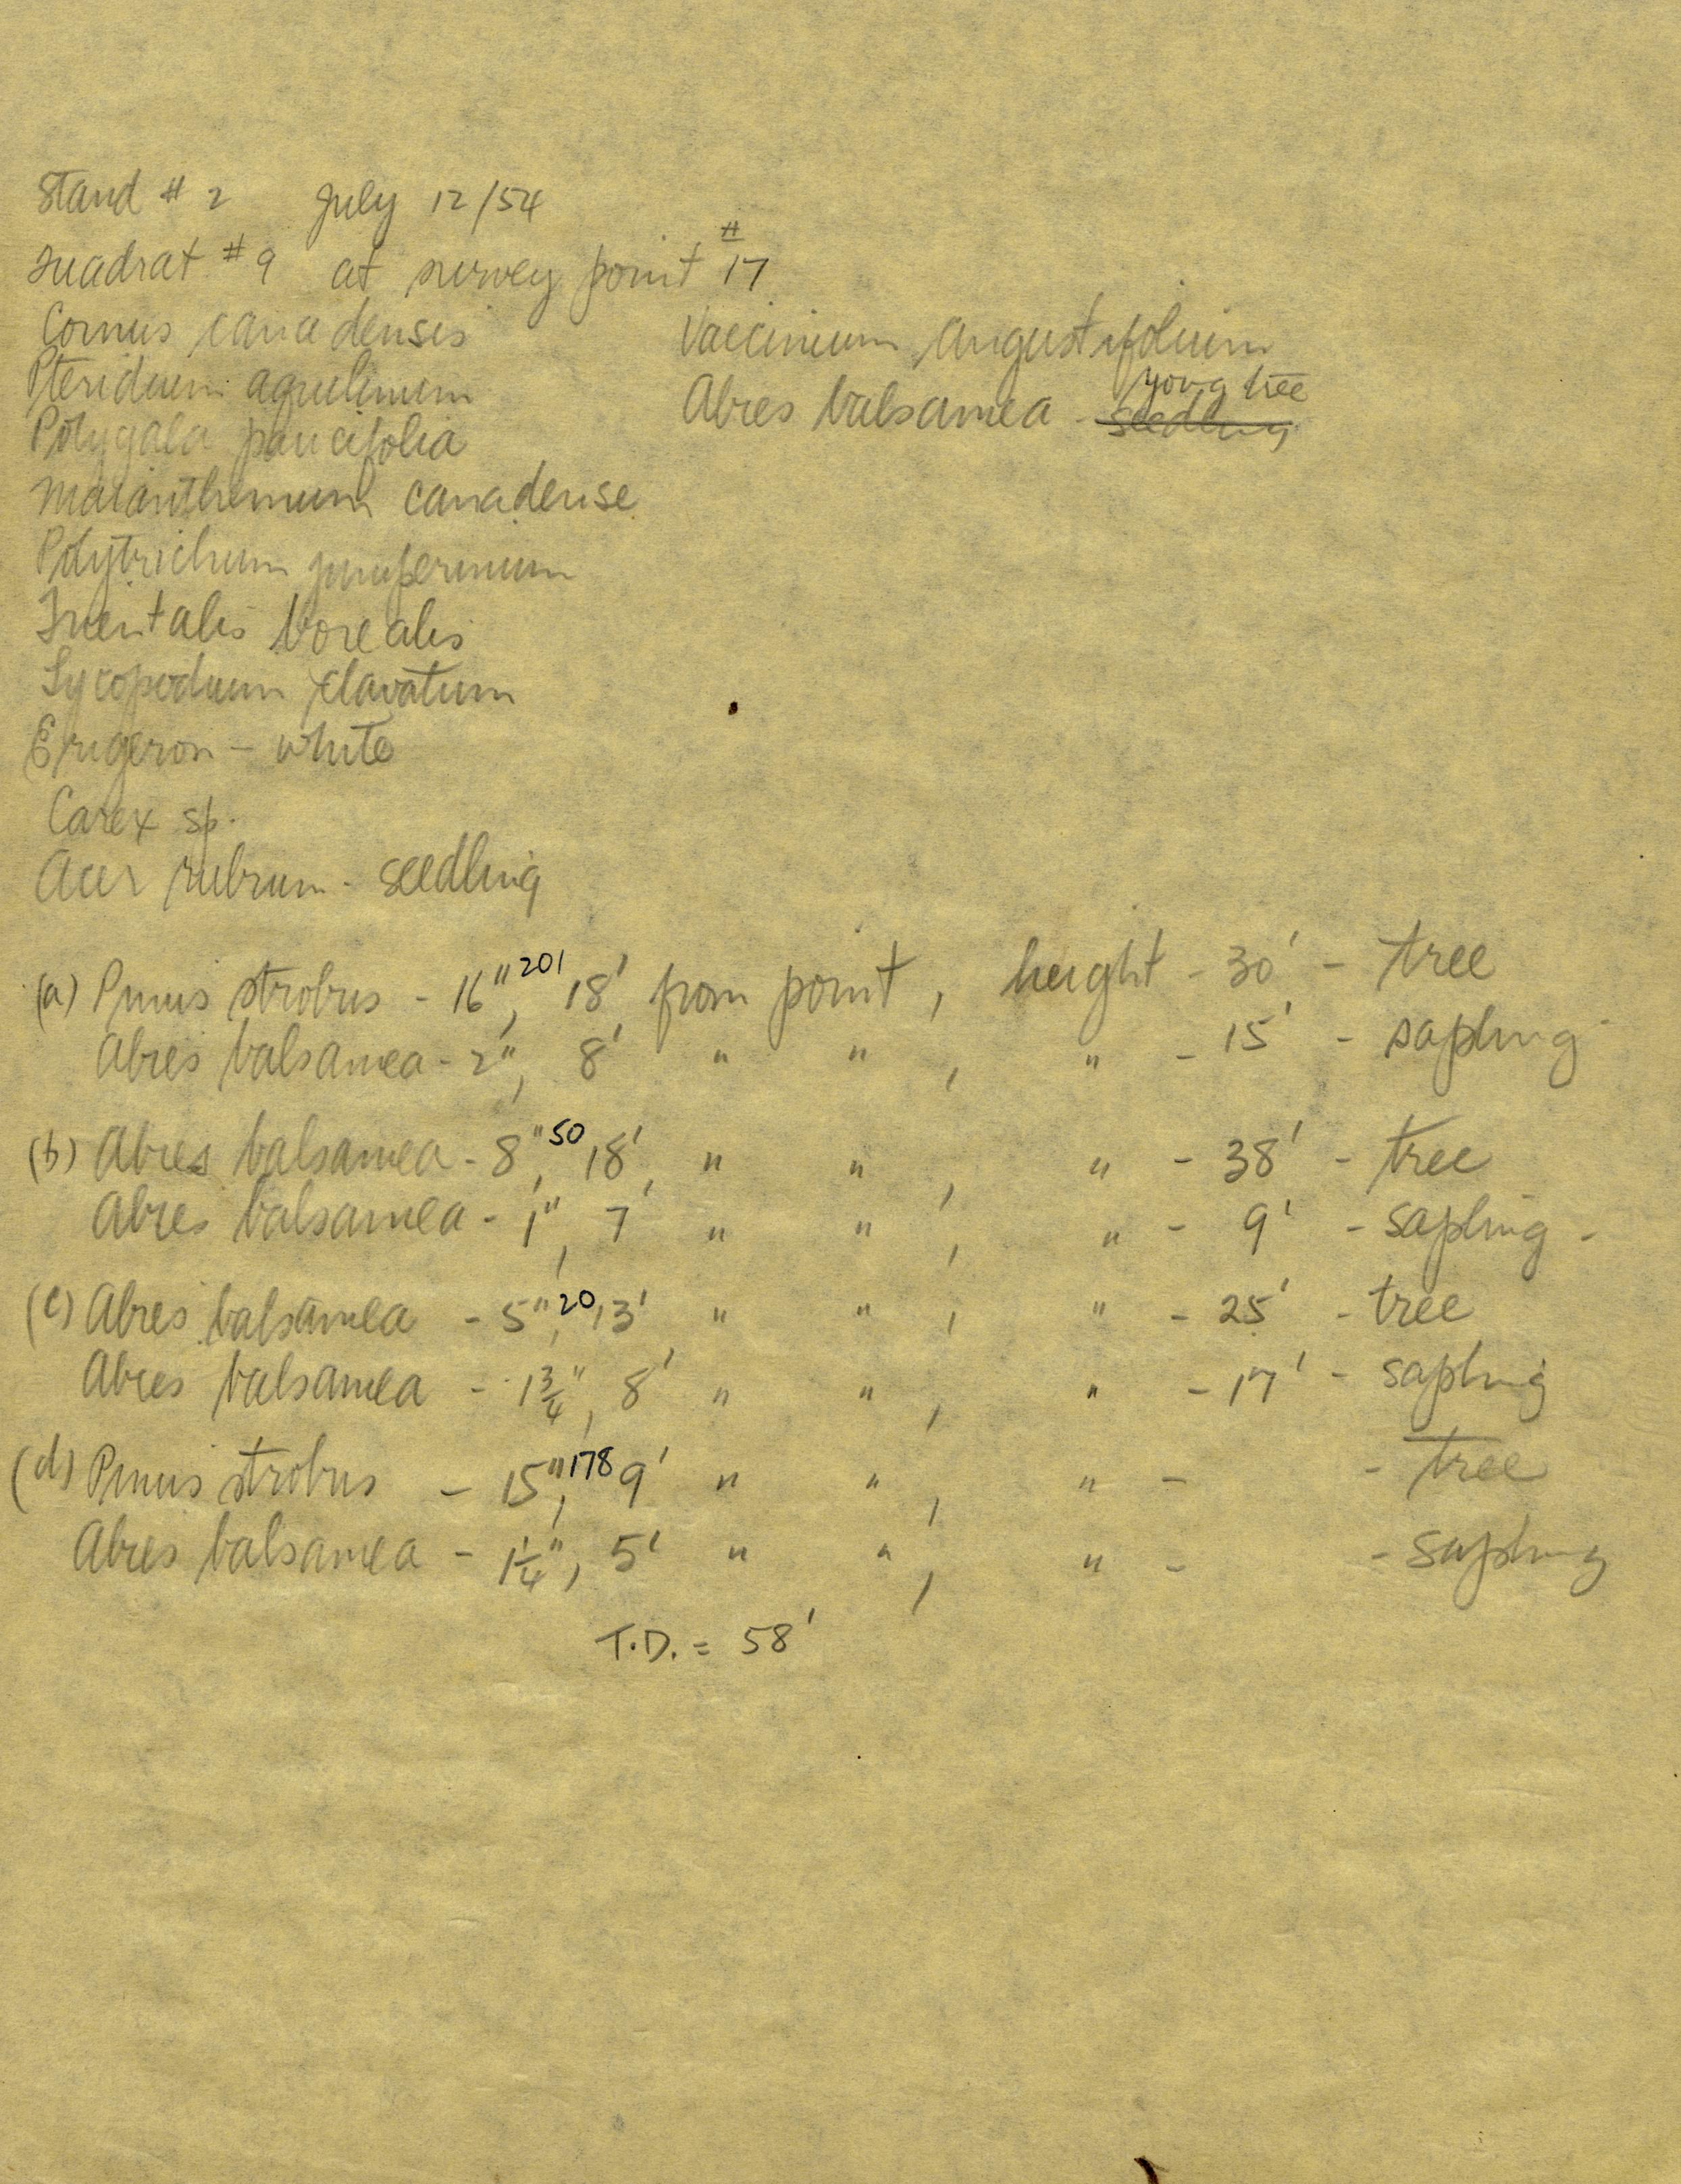 Stand # 2 July 12/54
Quadrat # 9 at survey point # 17
Cornus canadensis
Pteridium aquilinum
Polygala paucifolia
Maianthemum canadense
Polytrichum juniperinum
Trientalis borealis
Lycopodium clavatum
Erigeron - white
Carex sp.
Acer rubrum - seedling
Vaccinium angustifolium
Abies balsamea - seedling young tree
(a) Pinus strobus - 16", 201 18' from point, height - 30' - tree
Abies balsamea - 2", 8' " " , " - 15' - sapling
(b) Abies balsamea - 8", 50 18', " " , " - 38' - tree
Abies balsamea - 1", 7' " " , " - 9' - sapling -
(c) Abies balsamea - 5", 20 13' " " , " - 25' - tree
Abies balsamea - 1 3/4", 8' " " , " - 17' - sapling
(d) Pinus strobus - 15", 178 9' " " , " - - tree
Abies balsamea - 1 1/4", 5' " " , " - - sapling
T.D. = 58'